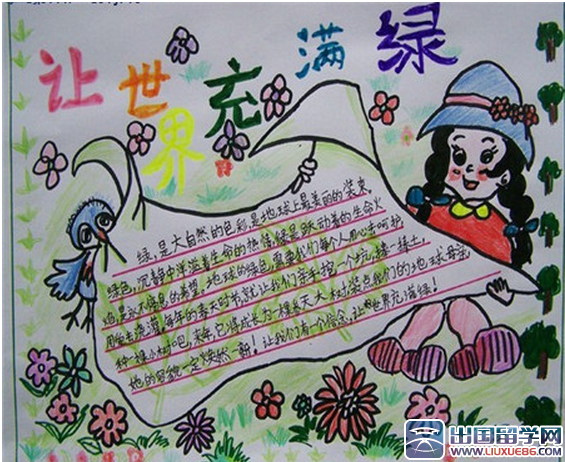 让世界充满绿
绿,是大自然的色彩,是地球上最美丽的装束。
绿色,沉静中洋溢着生命的热情,绿是跃动着的生命火
炮,是永不停息的希望。地球的绿色,需要我们每个人用心去呵护,
用行去浇灌,每年的春天时节,就让我们亲手挖一个坑,捧一抔土,
种一棵小树吧,来年,它将成长为一棵参天大树,装点我们的地球母亲,
她的容貌一定焕然一新!让我们有一个信念,让世界充满绿!
出国留学网
WWW.LIUXUE86.COM